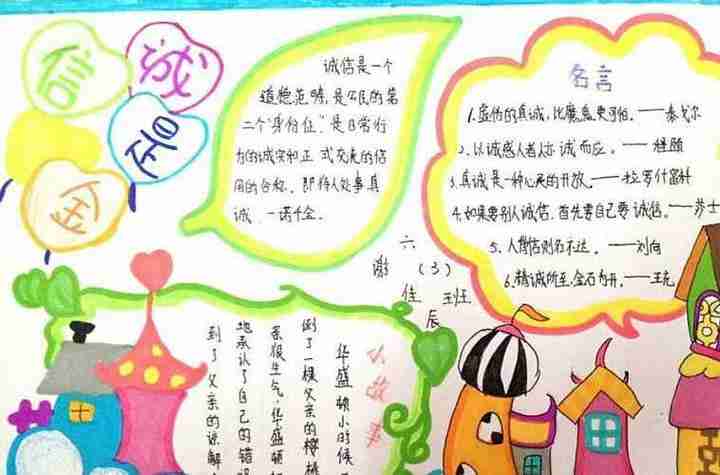 诚信是金
诚信是一个
道德范畴,是公民的第
二个"身份证",是日常行
为的诚实和正式交流的信
用的合称。即待人处事真
诚、一诺千金。
名言
1.虚伪的真诚,比魔鬼更可怕。——泰戈尔
2.以诚感人者人亦诚而应。——程颐
3.真诚是一种心灵的开放。——拉罗什富科
4.如果要别人诚信,首先要自己要诚信。——莎士
5.人背信则名不达。——刘向
6.精诚所至,金石为开。——王充
六(3)班
谢佳辰
小故事
华盛顿小时候
倒了一棵父亲的樱桃
亲很生气,华盛顿
地承认了自己的错
到了父亲的谅解